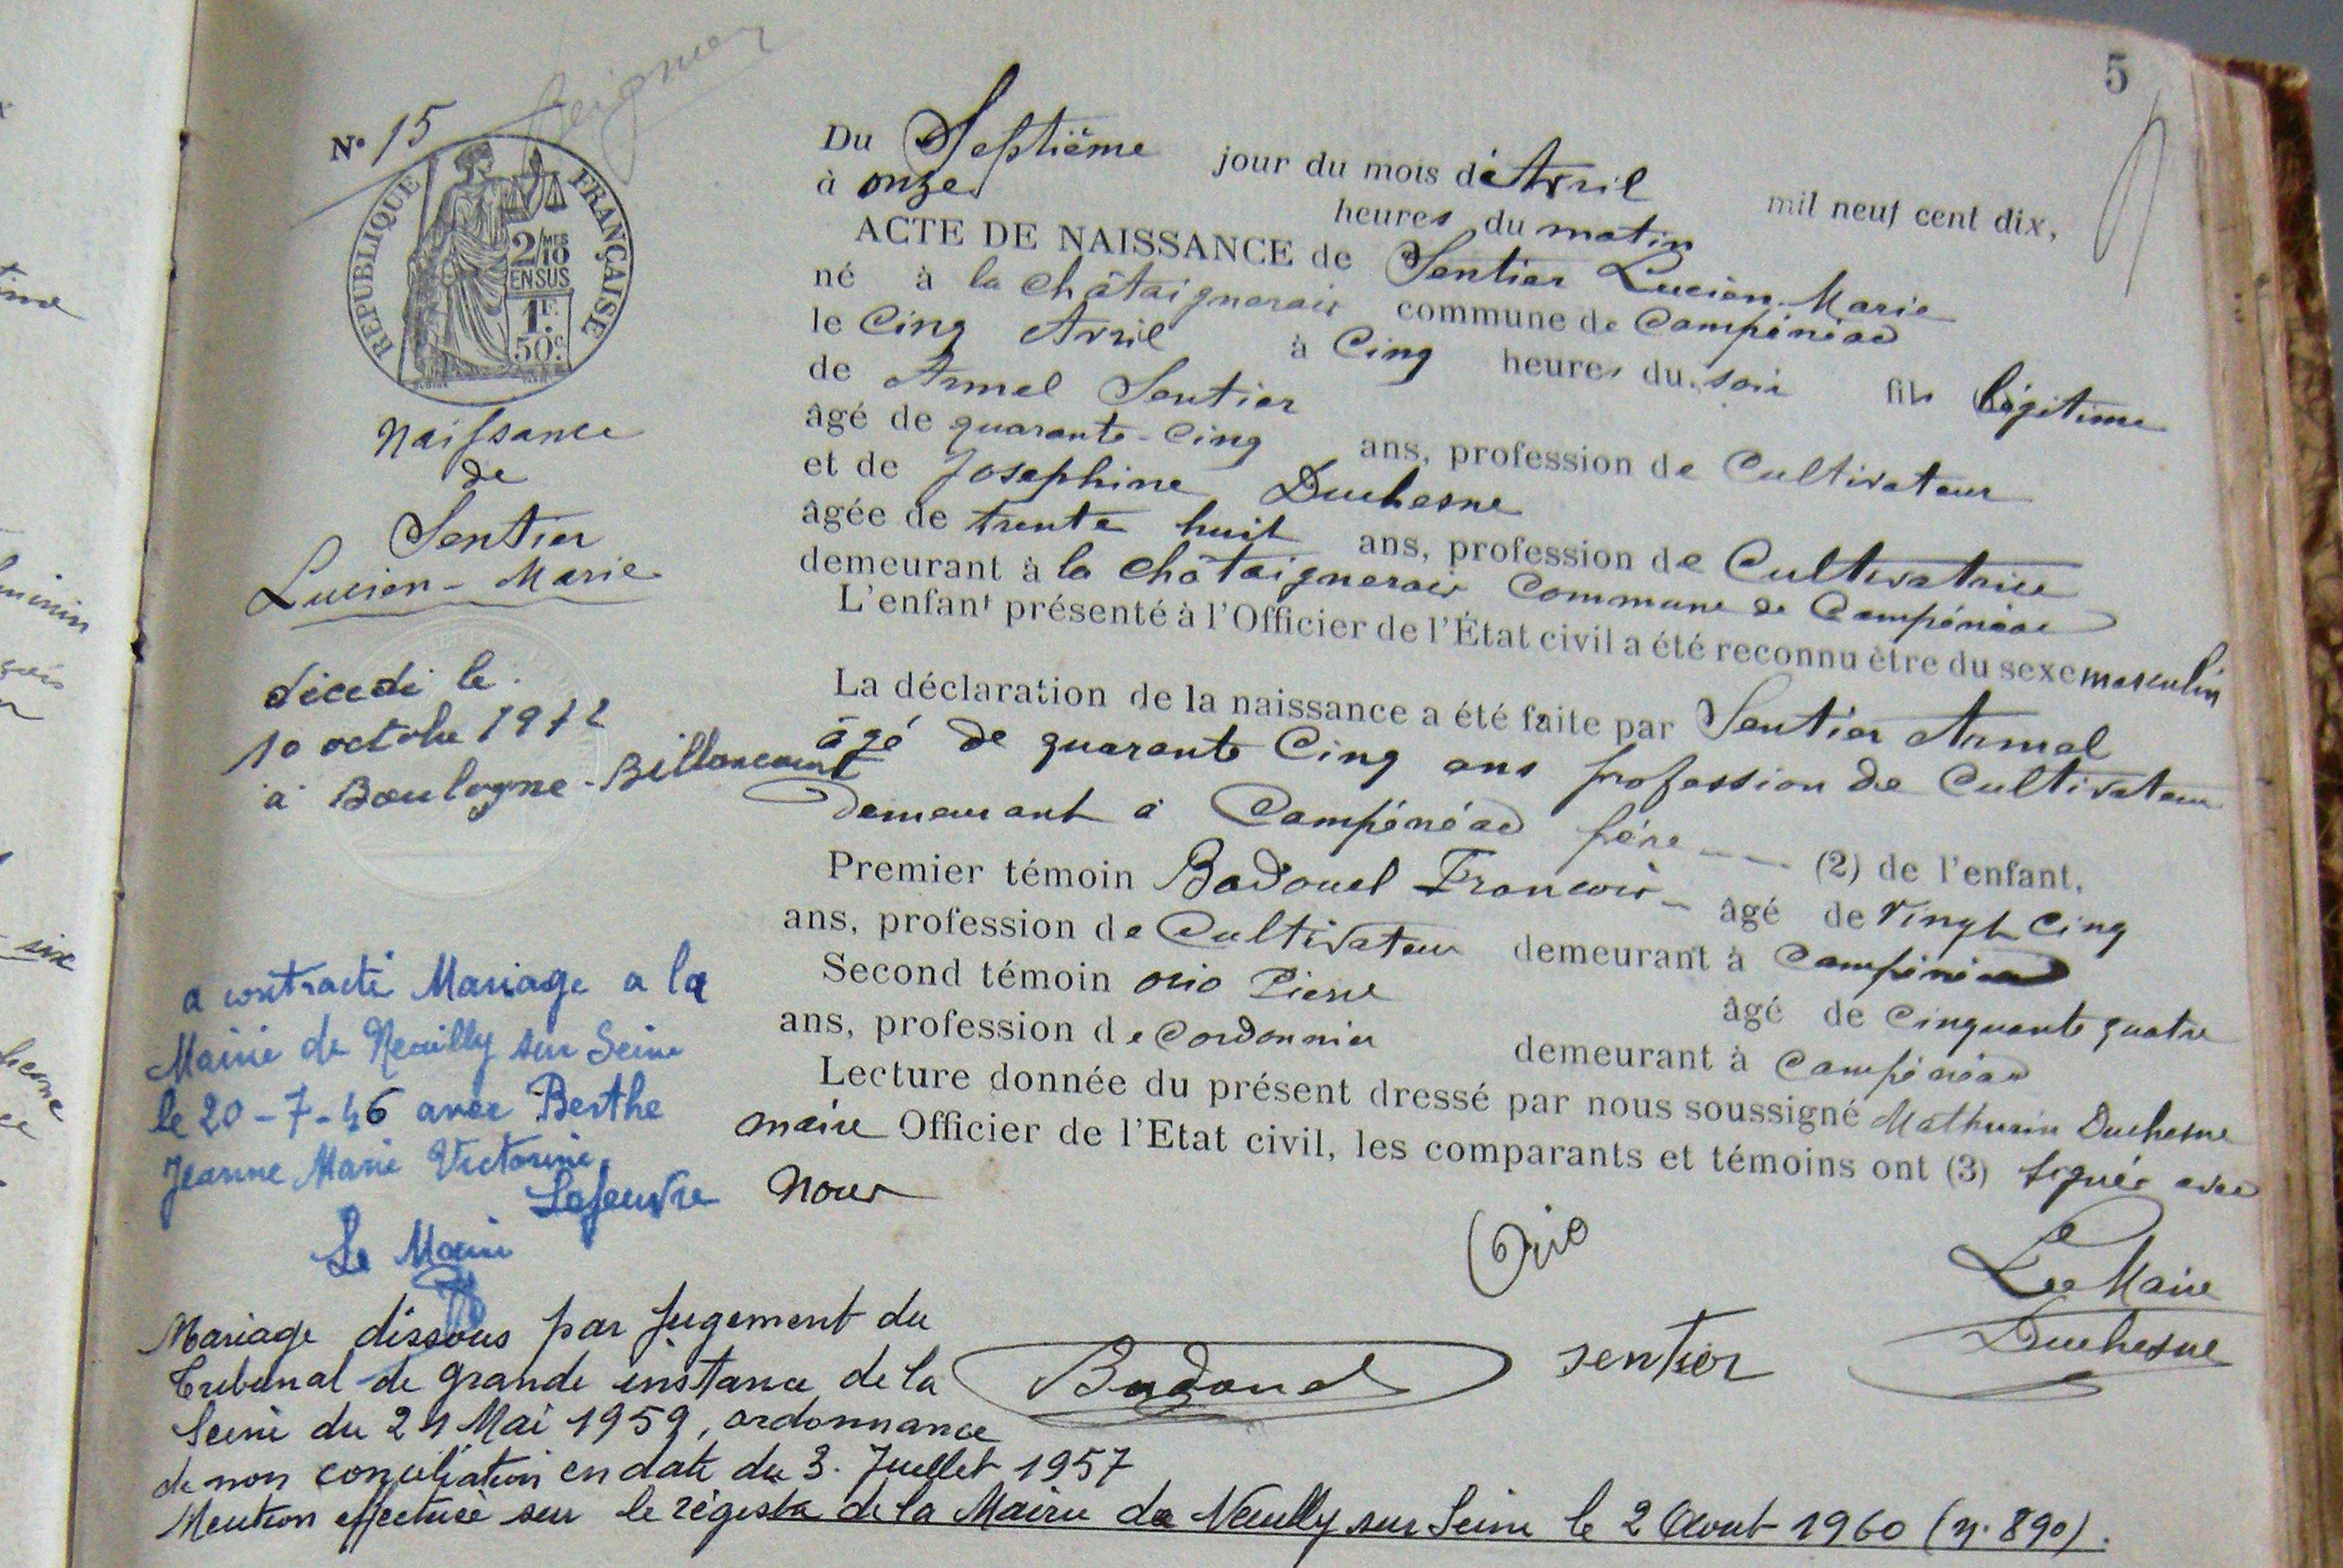 5
Nº 15
REPUBLIQUE FRANÇAISE
2/10 MES
EN SUS
1F.
50c
Naissance
de
Sentier
Lucien-Marie
décédé le
10 octobre 1972
à Boulogne-Billancourt
a contracté Mariage a la
Mairie de Neuilly sur Seine
le 20-7-46 avec Berthe
Jeanne Marie Victorine
Lefeuvre
Le Maire
Mariage dissous par jugement du
Tribunal de grande instance de la
Seine du 21 Mai 1959, ordonnance
de non conciliation en date du 3. Juillet 1957
Mention effectuée sur le régistre de la Mairie de Neuilly sur Seine le 2 Aout 1960 (n. 890).
Du Septième jour du mois d'Avril mil neuf cent dix,
à onze heures du matin
ACTE DE NAISSANCE de Sentier Lucien-Marie
né à la châtaigneraie commune de Campénéac
le Cinq Avril à Cinq heures du soir fils légitime
de Armel Sentier
âgé de quarante-Cinq ans, profession de Cultivateur
et de Josephine Duchesne
âgée de trente huit ans, profession de Cultivatrice
demeurant à la châtaigneraie Commune de Campénéac
L'enfant présenté à l'Officier de l'État civil a été reconnu être du sexe masculin
La déclaration de la naissance a été faite par Sentier Armel
âgé de quarante Cinq ans profession de Cultivateur
demeurant à Campénéac père (2) de l'enfant.
Premier témoin Badouel Francois âgé de vingt Cinq
ans, profession de Cultivateur demeurant à Campénéac
Second témoin orio Pierre âgé de cinquante quatre
ans, profession de Cordonnier demeurant à Campénéac
Lecture donnée du présent dressé par nous soussigné Mathurin Duchesne
maire Officier de l'Etat civil, les comparants et témoins ont (3) signés avec
Nous
Orio
Le Maire
Badouel
sentier
Duchesne